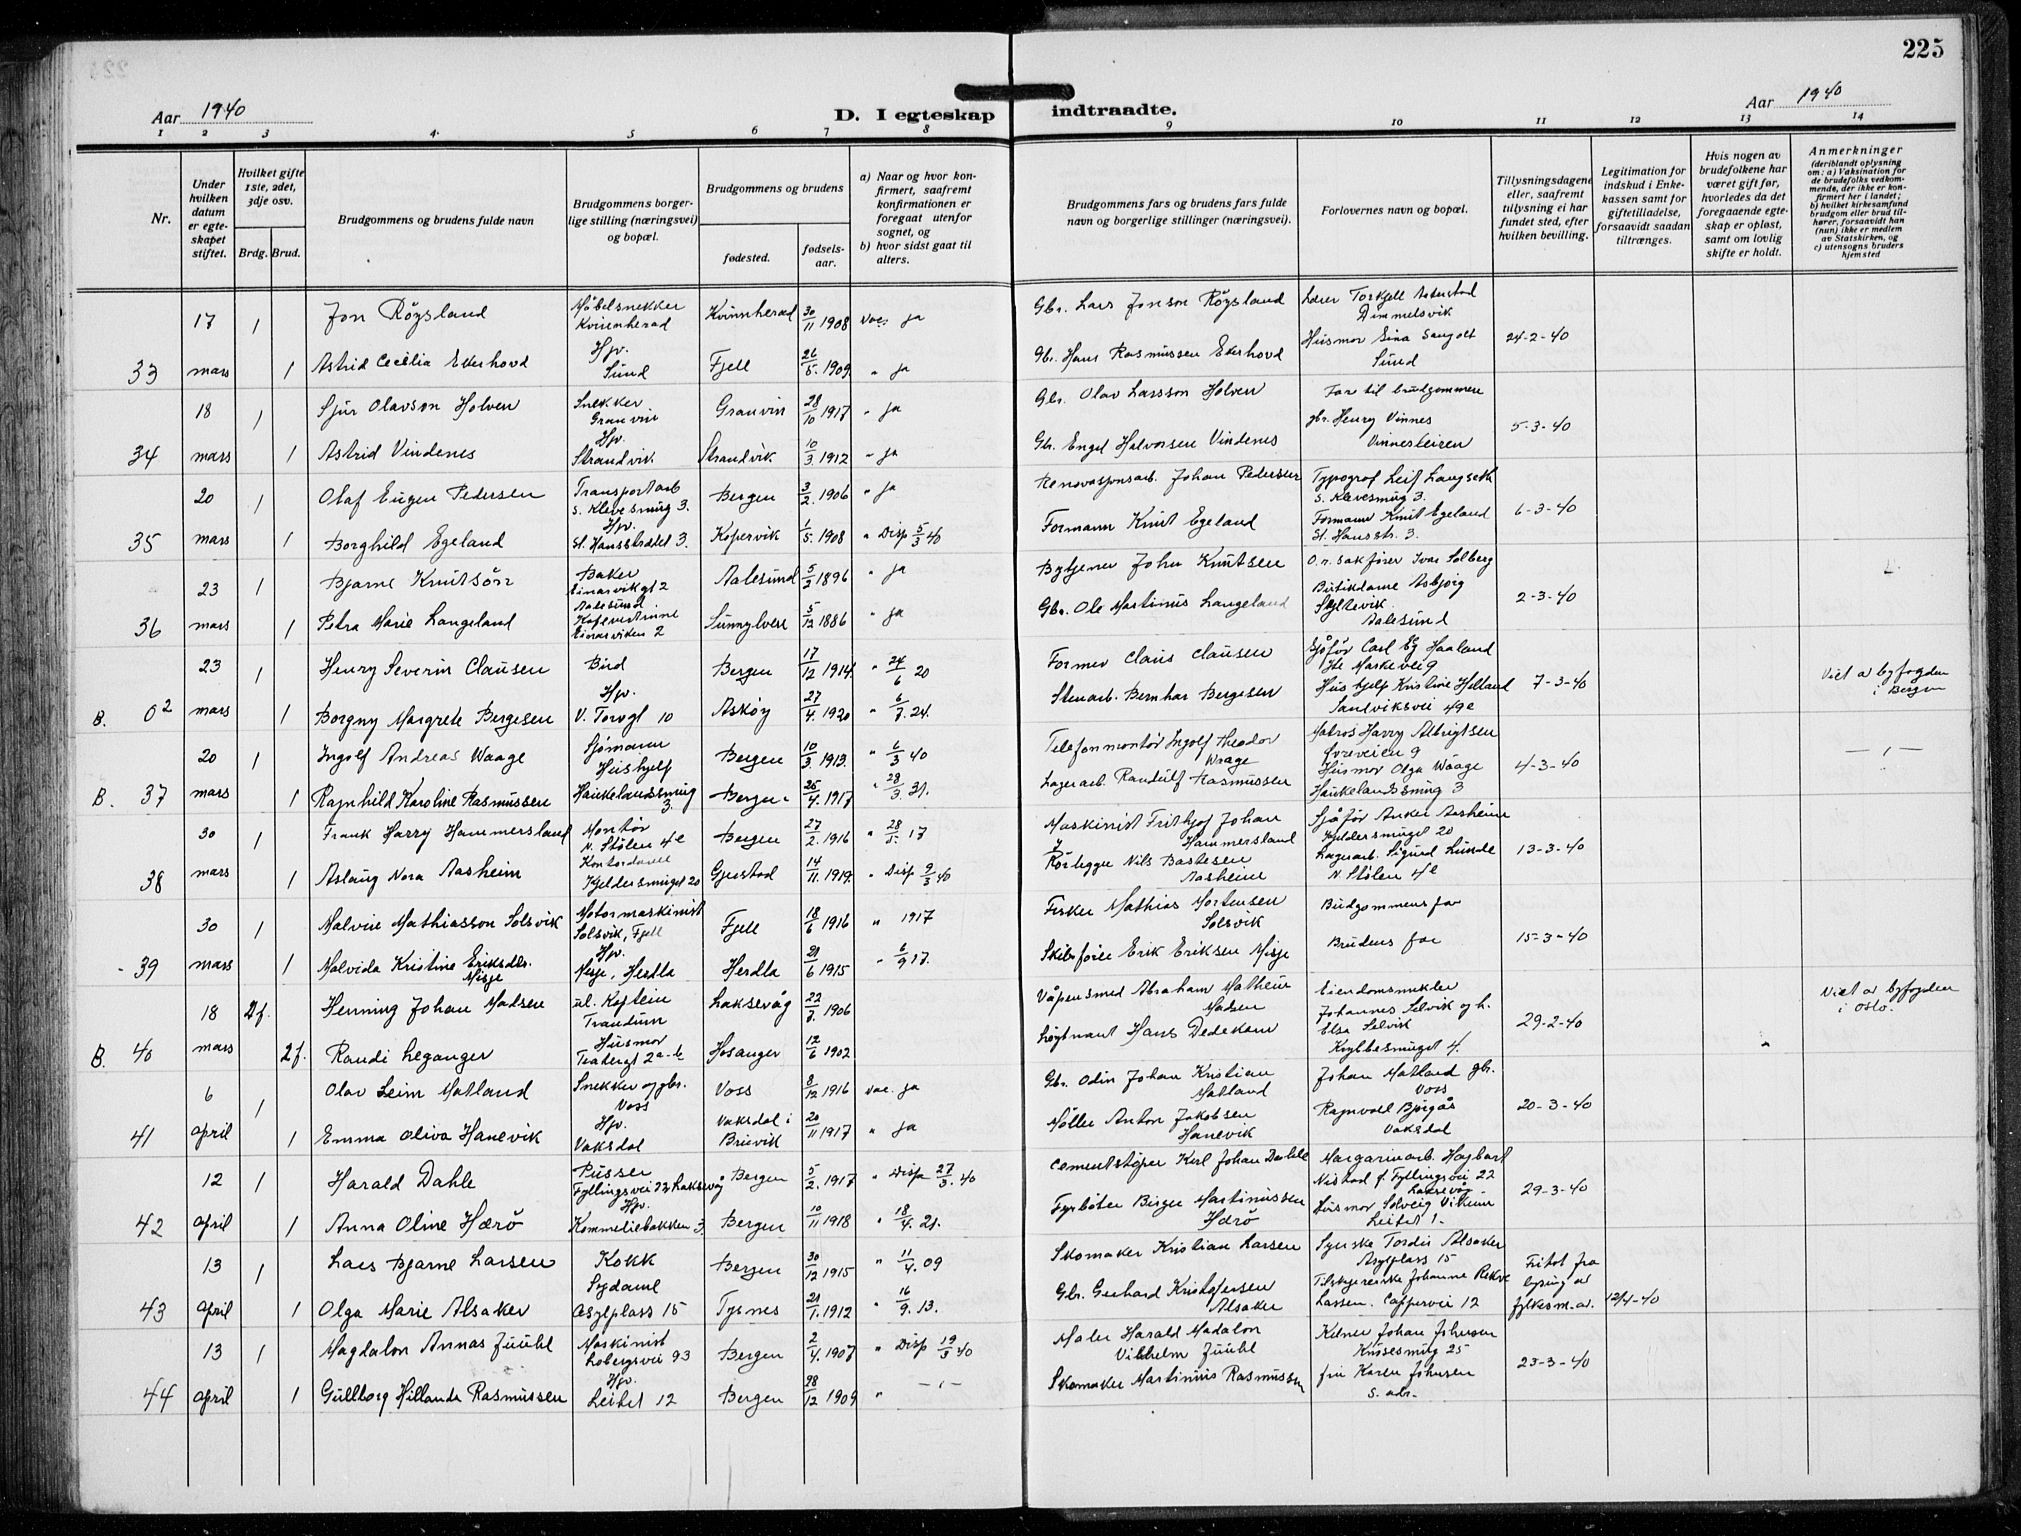 225
Aar 1940
D. I egteskap indtraadte.
Aar 1940
1 2 3 4. 5 6 7 8 9 10 11 12 13 14
Nr.
Under hvilken datum er egteskapet stiftet.
Hvilket gifte 1ste, 2det, 3dje osv.
Brdg. Brud.
Brudgommens og brudens fulde navn
Brudgommens borgerlige stilling (næringsvei) og bopæl.
Brudgommens og brudens
fødested.
fødselsaar.
a) Naar og hvor konfirmert, saafremt konfirmationen er foregaat utenfor sognet, og
b) hvor sidst gaat til alters.
Brudgommens fars og brudens fars fulde navn og borgerlige stillinger (næringsvei).
Forlovernes navn og bopæl.
Tillysningsdagene eller, saafremt tillysning ei har fundet sted, efter hvilken bevilling.
Legitimation for indskud i Enkekassen samt for giftetilladelse, forsaavidt saadan tiltrænges.
Hvis nogen av brudefolkene har været gift før, hvorledes da det foregaaende egteskap er opløst, samt om lovlig skifte er holdt.
Anmerkninger
(deriblandt oplysning om: a) Vaksination for de brudefolks vedkommende, der ikke er konfirmert her i landet; b) hvilket kirkesamfund brudgom eller brud tilhører, forsaavidt han (hun) ikke er medlem av Statskirken, og c) utensogns bruders hjemsted
17 1 Jon Røysland Møbelsnekker Kvinnherad Kvinnherad 30/11 1908 vac. ja Gbr. Lars Jonson Røysland Lærer Torkjell Dimmelsvik
33 mars 1 Astrid Cecilia Ekerhovd Hpv. Sund Fjell 26/5. 1909 " ja Gbr. Hans Rasmussen Ekerhovd Husmor Sund 24-2-40
18 1 Sjur Olavson Holven Snekker Granvin Granvin 28/10 1917 " ja Gbr. Olav Larsson Holven Far til brudgommen
34 mars 1 Astrid Vindenes Hpv. Strandvik Strandvik 10/3. 1912 " ja Gbr. Engel Halvorsen Vindenes gbr. Henry Vinnes Vinnesleiren 5-3-40
20 1 Olaf Eugen Pedersen Transportarb s. Klevesmug 3. Bergen 3/2. 1906 " ja Renovasjonsarb. Johan Pedersen Typograf Leif Langseth s. Klevesmug 3.
35 mars 1 Borghild Egeland Hpv. St. Hansstrædet 3. Kopervik 1/5. 1908 " Disp 5/3 40 Formann Knut Egeland Formann Knut Egeland St. Hansstr. 3. 6-3-40
23 1 Bjarne Knutsøn Baker Einarvikgt 2 Aalesund Aalesund 5/2 1896 " ja Bytjener John Knutsen O.r.sakfører Ivar Solberg
36 mars 1 Petra Marie Langeland Einarviken 2 Sunnylven 5/12 1886 " ja Gbr. Ole Martinus Langeland Butikdame Asbjørg Aalesund 2-3-40
23 1 Henry Severin Clausen Bud Bergen 17/12 1914. " 24/6 20 Former Claus Clausen Sjåfør Carl Eg Haaland
B. 02 mars 1 Borgny Margrete Bergesen Hpv. V. Torvgt 10 Askøy 27/4. 1920 " 6/7. 24. Stenarb. Bernhar Bergesen Hushjelp Kristine Helland Sandviksvei 49e 7-3-40 Viet a byfogden i Bergen
20 1 Ingolf Andreas Waage Sjømann Bergen 10/3. 1913. " 6/3 40 Telefonmontør Ingolf Theodor Waage Matros Harry Albrigtsen Øvreveien 9
B. 37 mars 1 Ragnhild Karoline Rasmussen Hushjelp Haukelandssmug 3. Bergen 25/4. 1917 " 28/3. 31. Lagerarb Randulf Rasmussen Husmor Olga Waage Haukelandssmug 3 4-3-40 — " —
30 1 Frank Harry Hammersland Montør N. Stølen 4e Bergen 27/2. 1916 " 28/5. 17 Maskinist Fritjof Johan Hammersland Sjåfør Anker Aasheim Kjeldersmuget 20
38 mars 1 Aslaug Nora Aasheim Kontordame Kjeldersmuget 20 Gjerstad 14/11. 1919. " Disp 9/3 40 Rørlegger Nils Bastesen Aasheim Lagerarb. Sigurd Lunde N. Stølen 4e 13-3-40
30 1 Malvin Mathiasson Solsvik Motormaskinist Solsvik, Fjell Fjell 18/6 1916 " 1917 Fisker Mathias Mortensen Solsvik Brudgommens far
39 mars 1 Malvida Kristine Eriksdtr. Misje Hpv. Misje, Herdla Herdla 21/6 1915 " 6/9 17. Skibsfører Erik Eriksen Misje Brudens far 15-3-40
18 2f. Henning Johan Madsen Kaptein Trandum Laksevåg 22/3. 1906 Våpensmed Abraham Mathein Madsen Eiendomsmekler Johannes Selvik og h.
B. 40 mars 2f. Randi Leganger Husmor Teatergt 2a-b Hosanger 12/6 1902 Løytnant Hans Dedekam Elsa Selvik 4. 29-2-40 Viet av byfogden i Oslo.
6 1 Olav Seim Matland Snekker og gbr. Voss Voss 8/12 1916 vac. ja Gbr. Odin Johan Kristian Matland Johan Matland gbr. Voss
41 April 1 Emma Oliva Hanevik Hpv. Vaksdal Vaksdal i Bruvik 20/11 1917 " ja Møller Anton Jakobsen Hanevik Ragnvall Bjørgås Vaksdal 20-3-40
12 1 Harald Dahle Pusser Fyllingsvei 22 Laksevåg Bergen 5/2. 1917 " Disp 27/3. 40 Cementstøper Karl Johan Dahle Margarinarb. Hagbart Nistad f. Fyllingsvei 22 Laksevåg
42 April 1 Anna Oline Hærø Hpv. Kommeliebakken 3 Bergen 10/11 1918 " 18/4. 21. Fyrbøter Birger Martinussen Hærø Husmor Solveig Leitet 1. 29-3-40
13 1 Lars Bjarne Larsen Kokk Bergen 30/12 1915 " 11/4. 09 Skomaker Kristian Larsen Syerske Tordis Alsaker Asylplass 15 Fritat fra
43 April 1 Olga Marie Alsaker Sydame Asylplass 15 Tysnes 21/1. 1912 " 16/9. 13. Gbr. Gerhard Kristofersen Alsaker Tilskjererske Johanne Larsen. Cappesvei 12 lysing av fylkesm. av. 12/4-40
13 1 Magdalon Annas Juuhl Maskinist Løbergsvei 93 Bergen 2/4. 1907 " Disp 19/3 40 Maler Harald Madalon Vilhelm Juuhl Kelner Johan Johnsen Krusesmug 25
44 April 1 Gullborg Hillanda Rasmussen Hpv. Leitet 12 Bergen 28/12 1909 " — " — Skomaker Martinius Rasmussen fru Karen Johnsen s. adr. 23-3-40